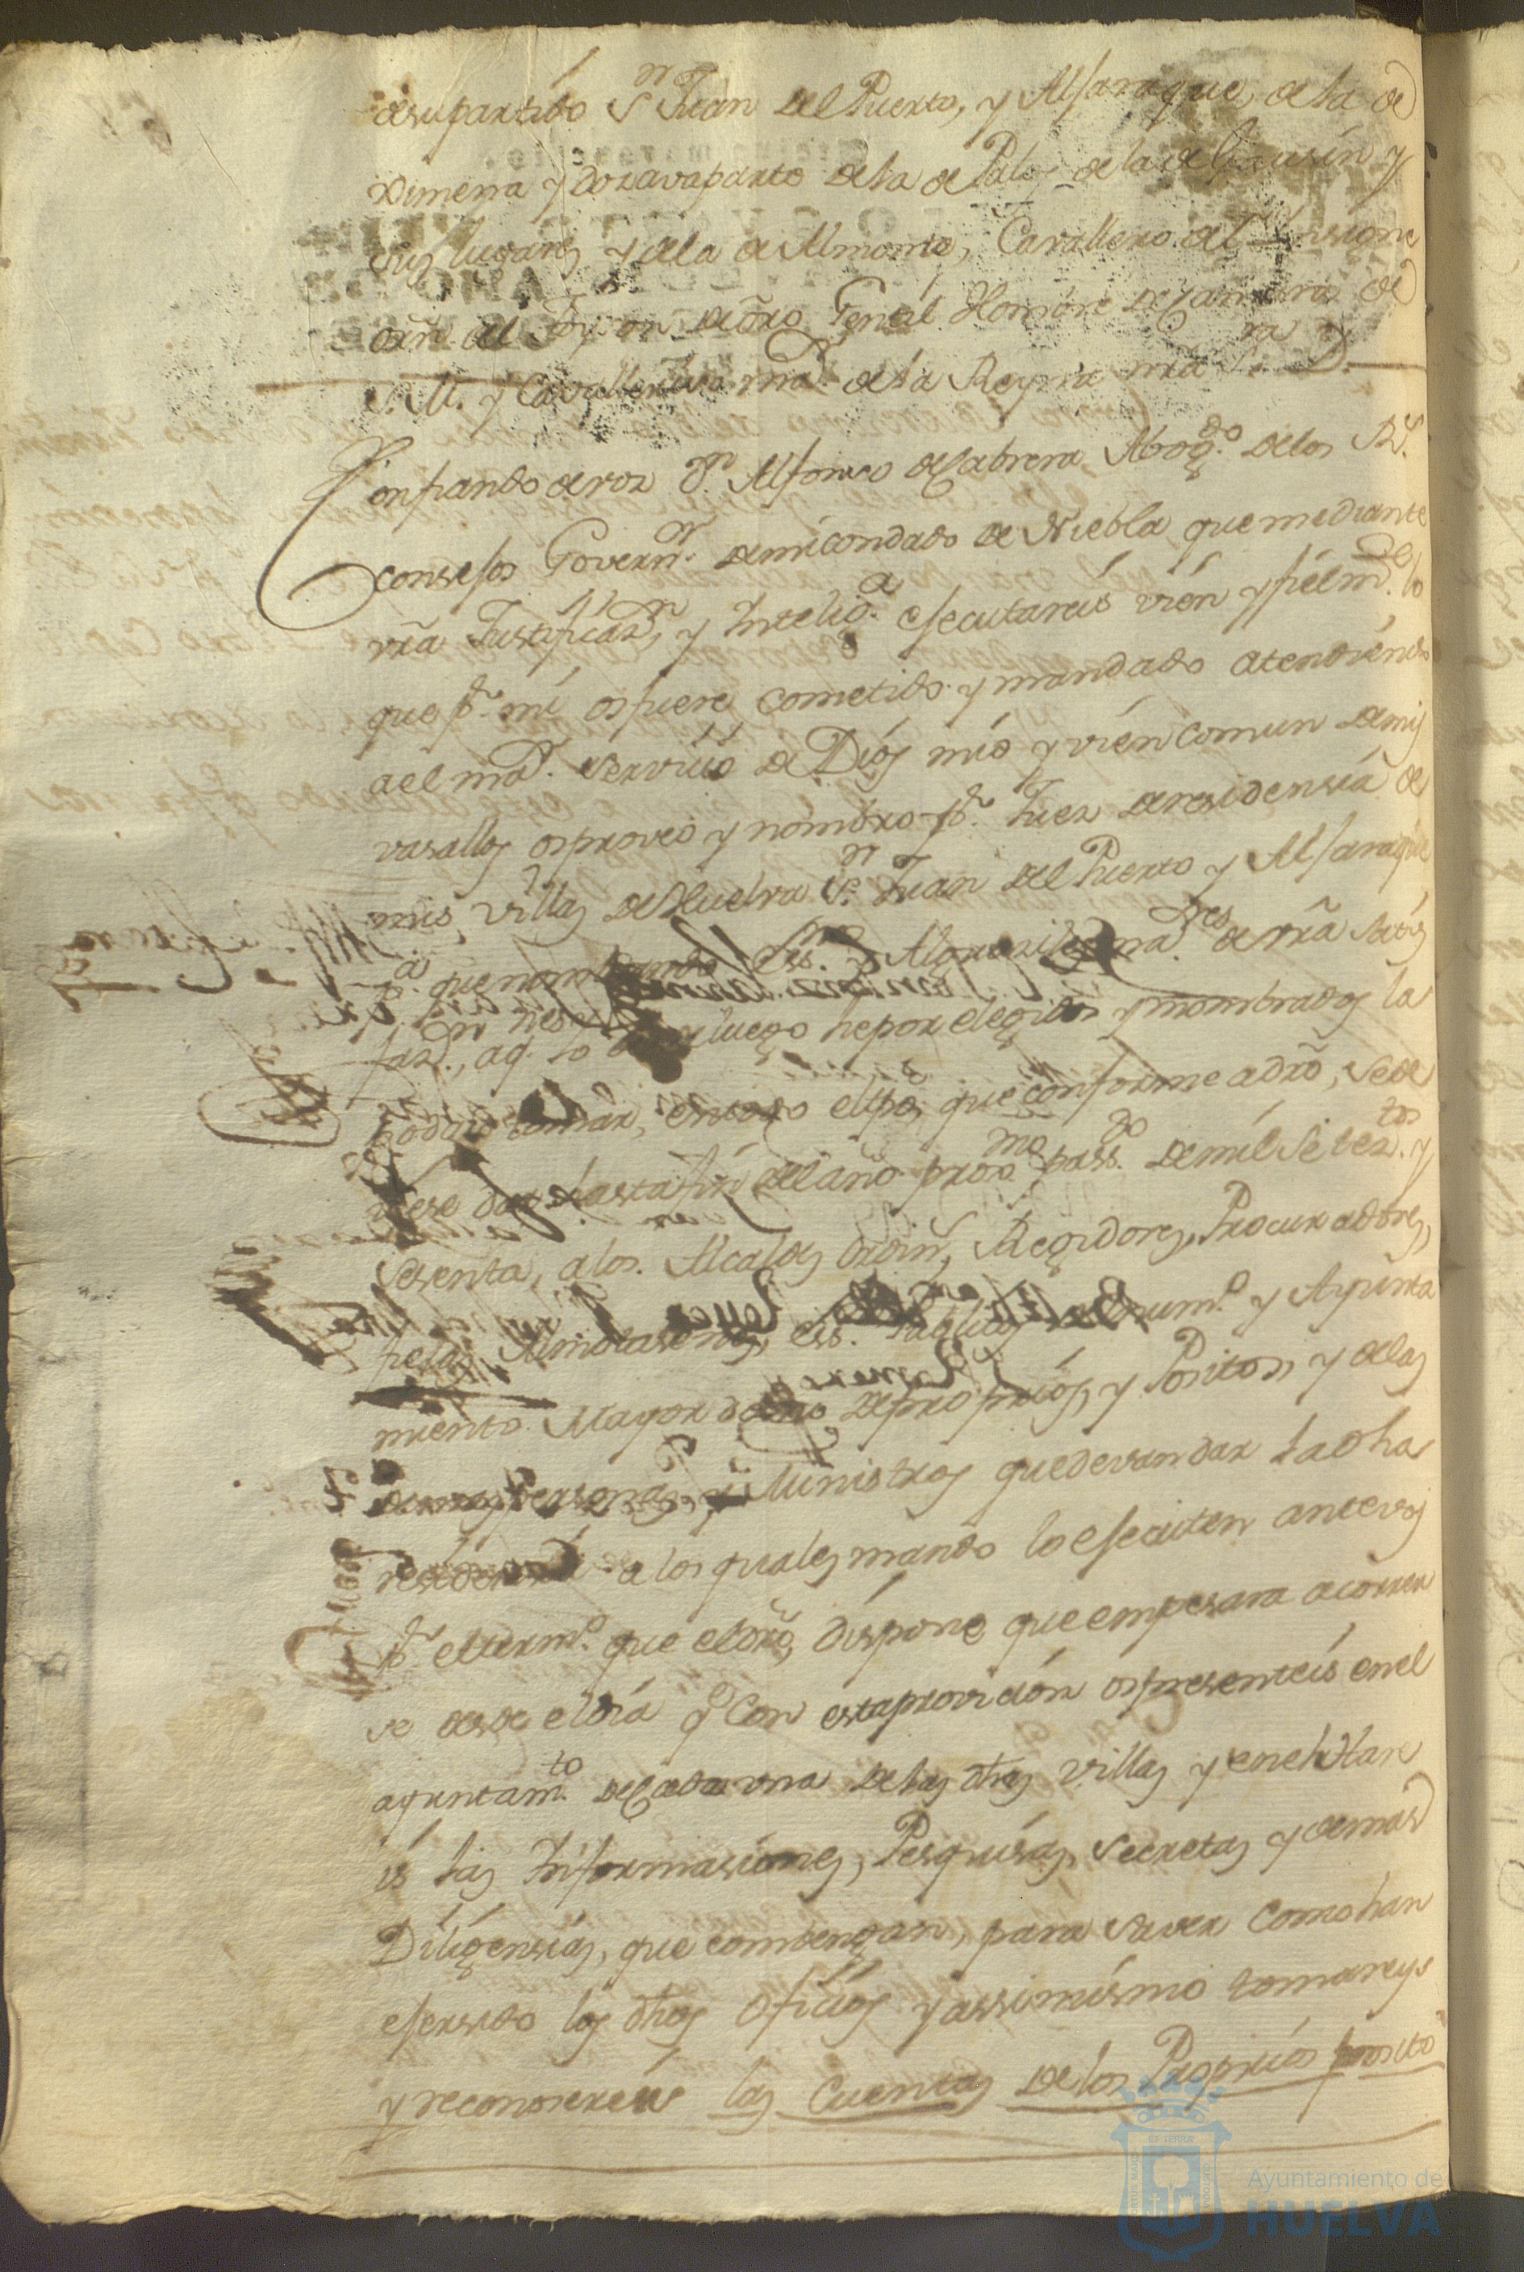 desu partido Sn. Juan del Puerto, y Alfaraque, de la de
Ximena y Dozavaparte dela de Palos dela de Gausín y
sus lugares y dela de Almonte, Cavallero del Insigne
orñ. del Toyson de Oro Genˡ. Hombre de Camara de
S. M. y Cavallerizo maˣ. dela Reyna nrã Sra. D.
Confiando de vos Dn. Alfonso de Cabrera Abogdo. delos Rs.
consejos Governr. demi condado de Niebla que mediante
vrã Justificazn, y Inteliga. esecutareis vien y fielmte. lo
que pr. mi os fuere cometido y mandado atendiendo
a el maˣ. servicio de Dios mio y vien comun de mis
vasallos os proveo y nombro pr. Juez de residensia de
mis villas de Huelva Sn. Juan del Puerto y Alfaraque
pa. que nombrando Ess. y Alguasiles mares. de vrã satis
fazn., aq. desde luego he por elegidos y nombrados la
podais tomar, en todo el tpo, que conforme adrõ, se de
viese dar hasta fin del año proxmo passdo. de mil seteztos. y
sesenta, alos. Alcaldes ordins, Regidores, Procuradores,
fieles Almotasenes, Ess. Publicos numo. y Ayunta
miento Mayordomo de proprios, y Positos, y delas
demas Personas, y Ministros que devan dar la dha
residensia a los quales mando lo esecuten ante vos
pr. el termo. que el drõ, dispone que empesara a correr
se desde el día q Con esta provición os presenteis en el
ayuntamto. de Cada una de las dhas villas y enella Hare
is las Informasiones, Pesquisas, secretas y demas
Diligensias, que combengan, para saver como han
esersido los dhos oficios y assimismo tomareys
y reconosereis las Cuentas de los Proprios posito
Ayuntamiento de
HUELVA